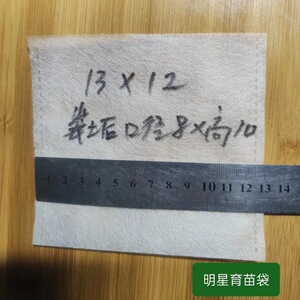 13 X 12
装土后口径8×高10
1 2 3 4 5 6 7 8 9 10 11 12 13 14
明星育苗袋